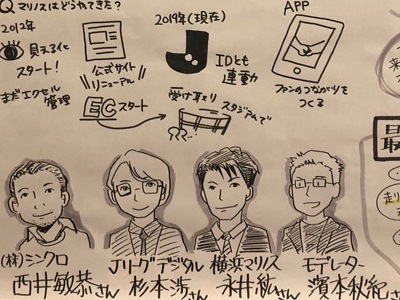 Q マリノスはどうやってきた?
2012年
見える化
スタート!
まだエクセル
管理
公式サイト
リニューアル
EC スタート
2019年(現在)
IDとも
連動
受け取り
スタジアムで
APP
ファンのつながりを
つくる
(株)シンクロ
西井敏恭さん
Jリーグデジタル
杉本渉さん
横浜マリノス
永井紘さん
モデレーター
濱本秋紀さん
最
走り